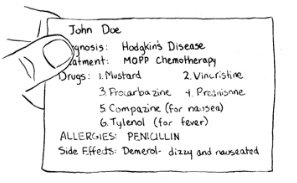 John Doe
gnosis: Hodgkin's Disease
atment: MOPP Chemotherapy
Drugs: 1. Mustard 2. Vincristine
3. Procarbazine 4. Prednisone
5. Compazine (for nausea)
6. Tylenol (for fever)
ALLERGIES: PENICILLIN
Side Effects: Demerol- dizzy and nauseated